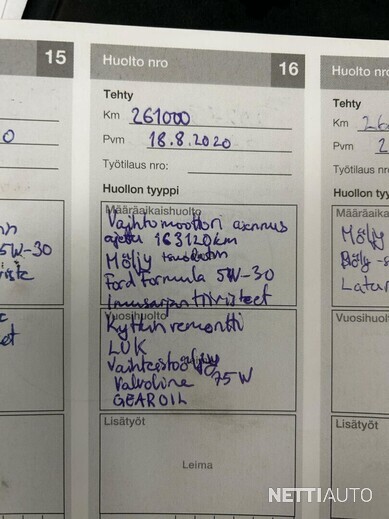 15
Huolto nro 16
Huolto nro
Tehty
Km 261000
Pvm 18.8.2020
Työtilaus nro:
Huollon tyyppi
Määräaikaishuolto
Vaihtomoottori asennus
ajettu 163120km
Möljy
Ford Formula 5W-30
Imusarjan tiivisteet
Vuosihuolto
Kytkinremontti
LUK
Vaihteistoöljy
Valvoline 75W
GEAROIL
Lisätyöt
Leima
5W-30
Tehty
Km
Pvm
Työtilaus nro:
Huollon tyy
Määräaika
Möljy
Vuosihuolt
Lisätyöt
NETTIAUTO